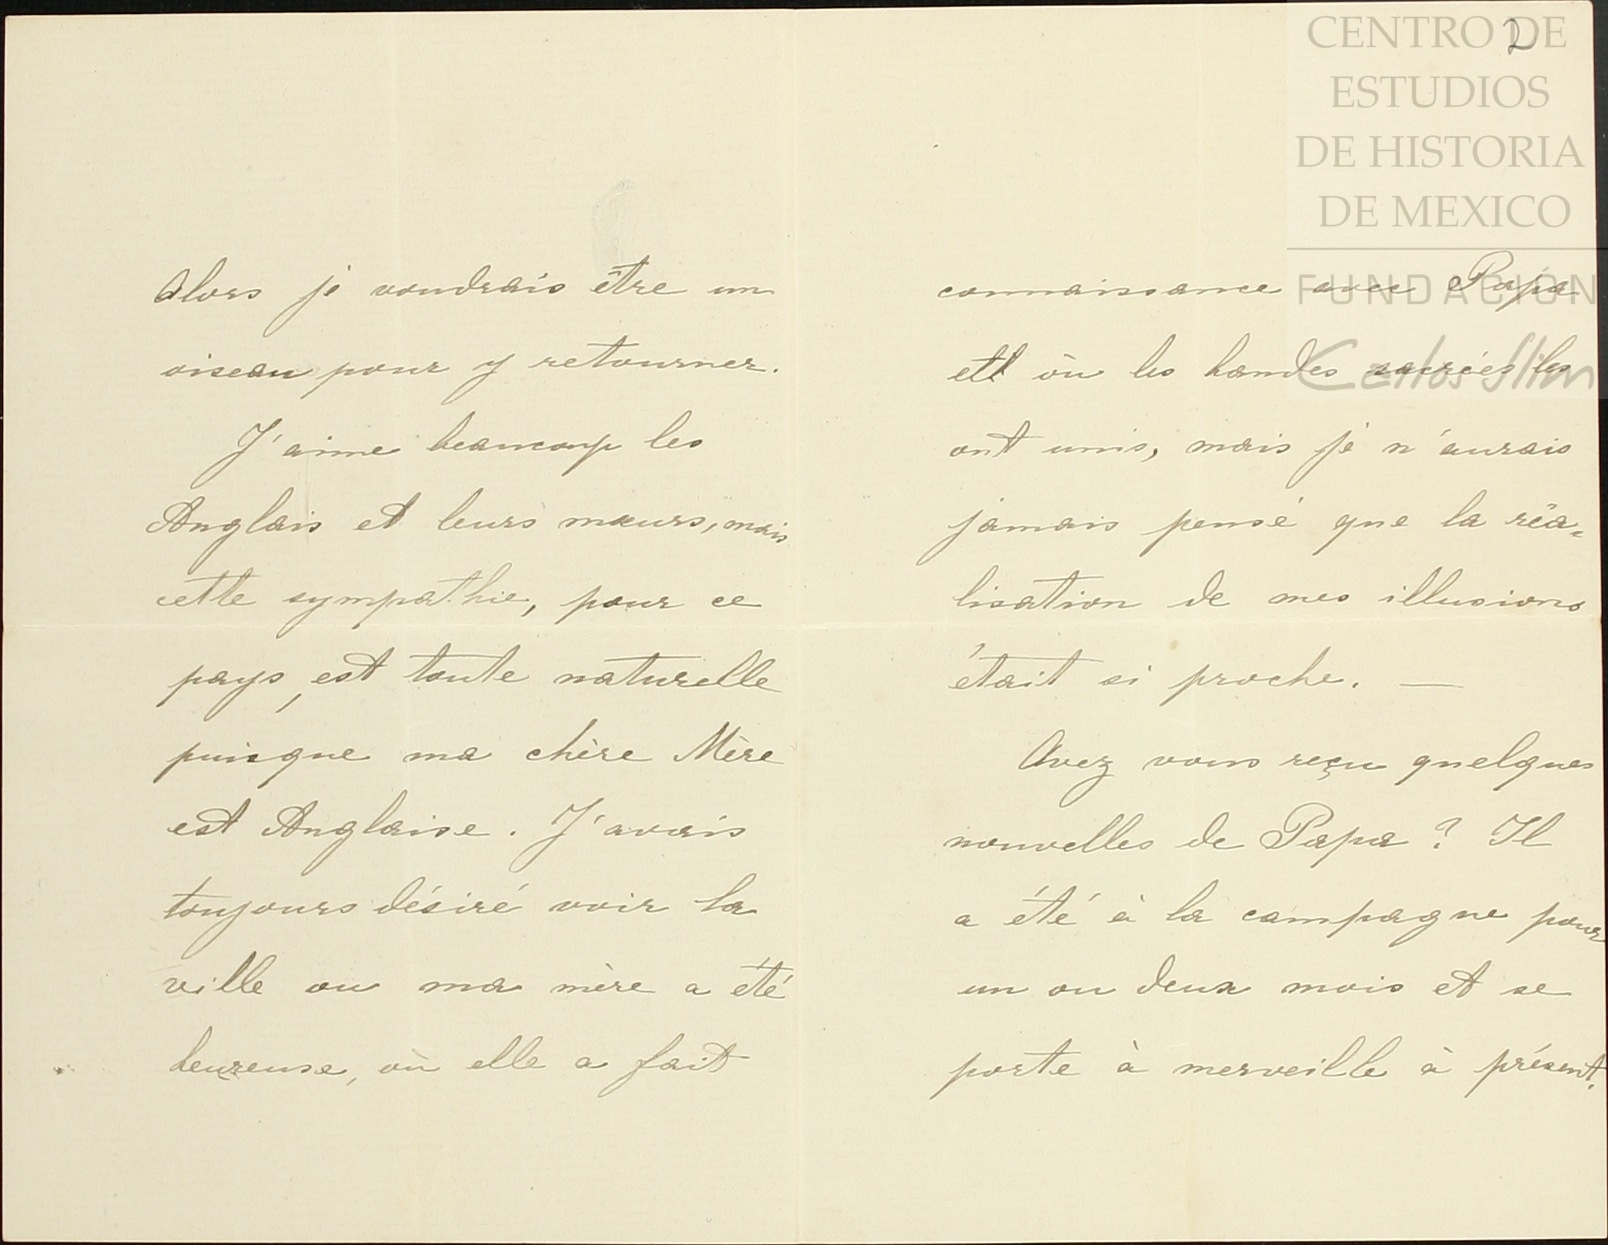 Alors je voudrais être un
oiseau pour y retourner.
J'aime beaucoup les
Anglais et leurs mœurs, mais
cette sympathie, pour ce
pays, est toute naturelle
puisque ma chère Mère
est Anglaise. J'avais
toujours désiré voir la
ville ou ma mère a été
heureuse, où elle a fait
2
connaissance avec Papa
et où les bandes sacrées les
ont unis, mais je n'aurais
jamais pensé que la réa=
lisation de mes illusions
était si proche. —
Avez vous reçu quelques
nouvelles de Papa ? Il
a été à la campagne pour
un ou deux mois et se
porte à merveille à présent.
CENTRO DE
ESTUDIOS
DE HISTORIA
DE MEXICO
FUNDACIÓN
Carlos Slim